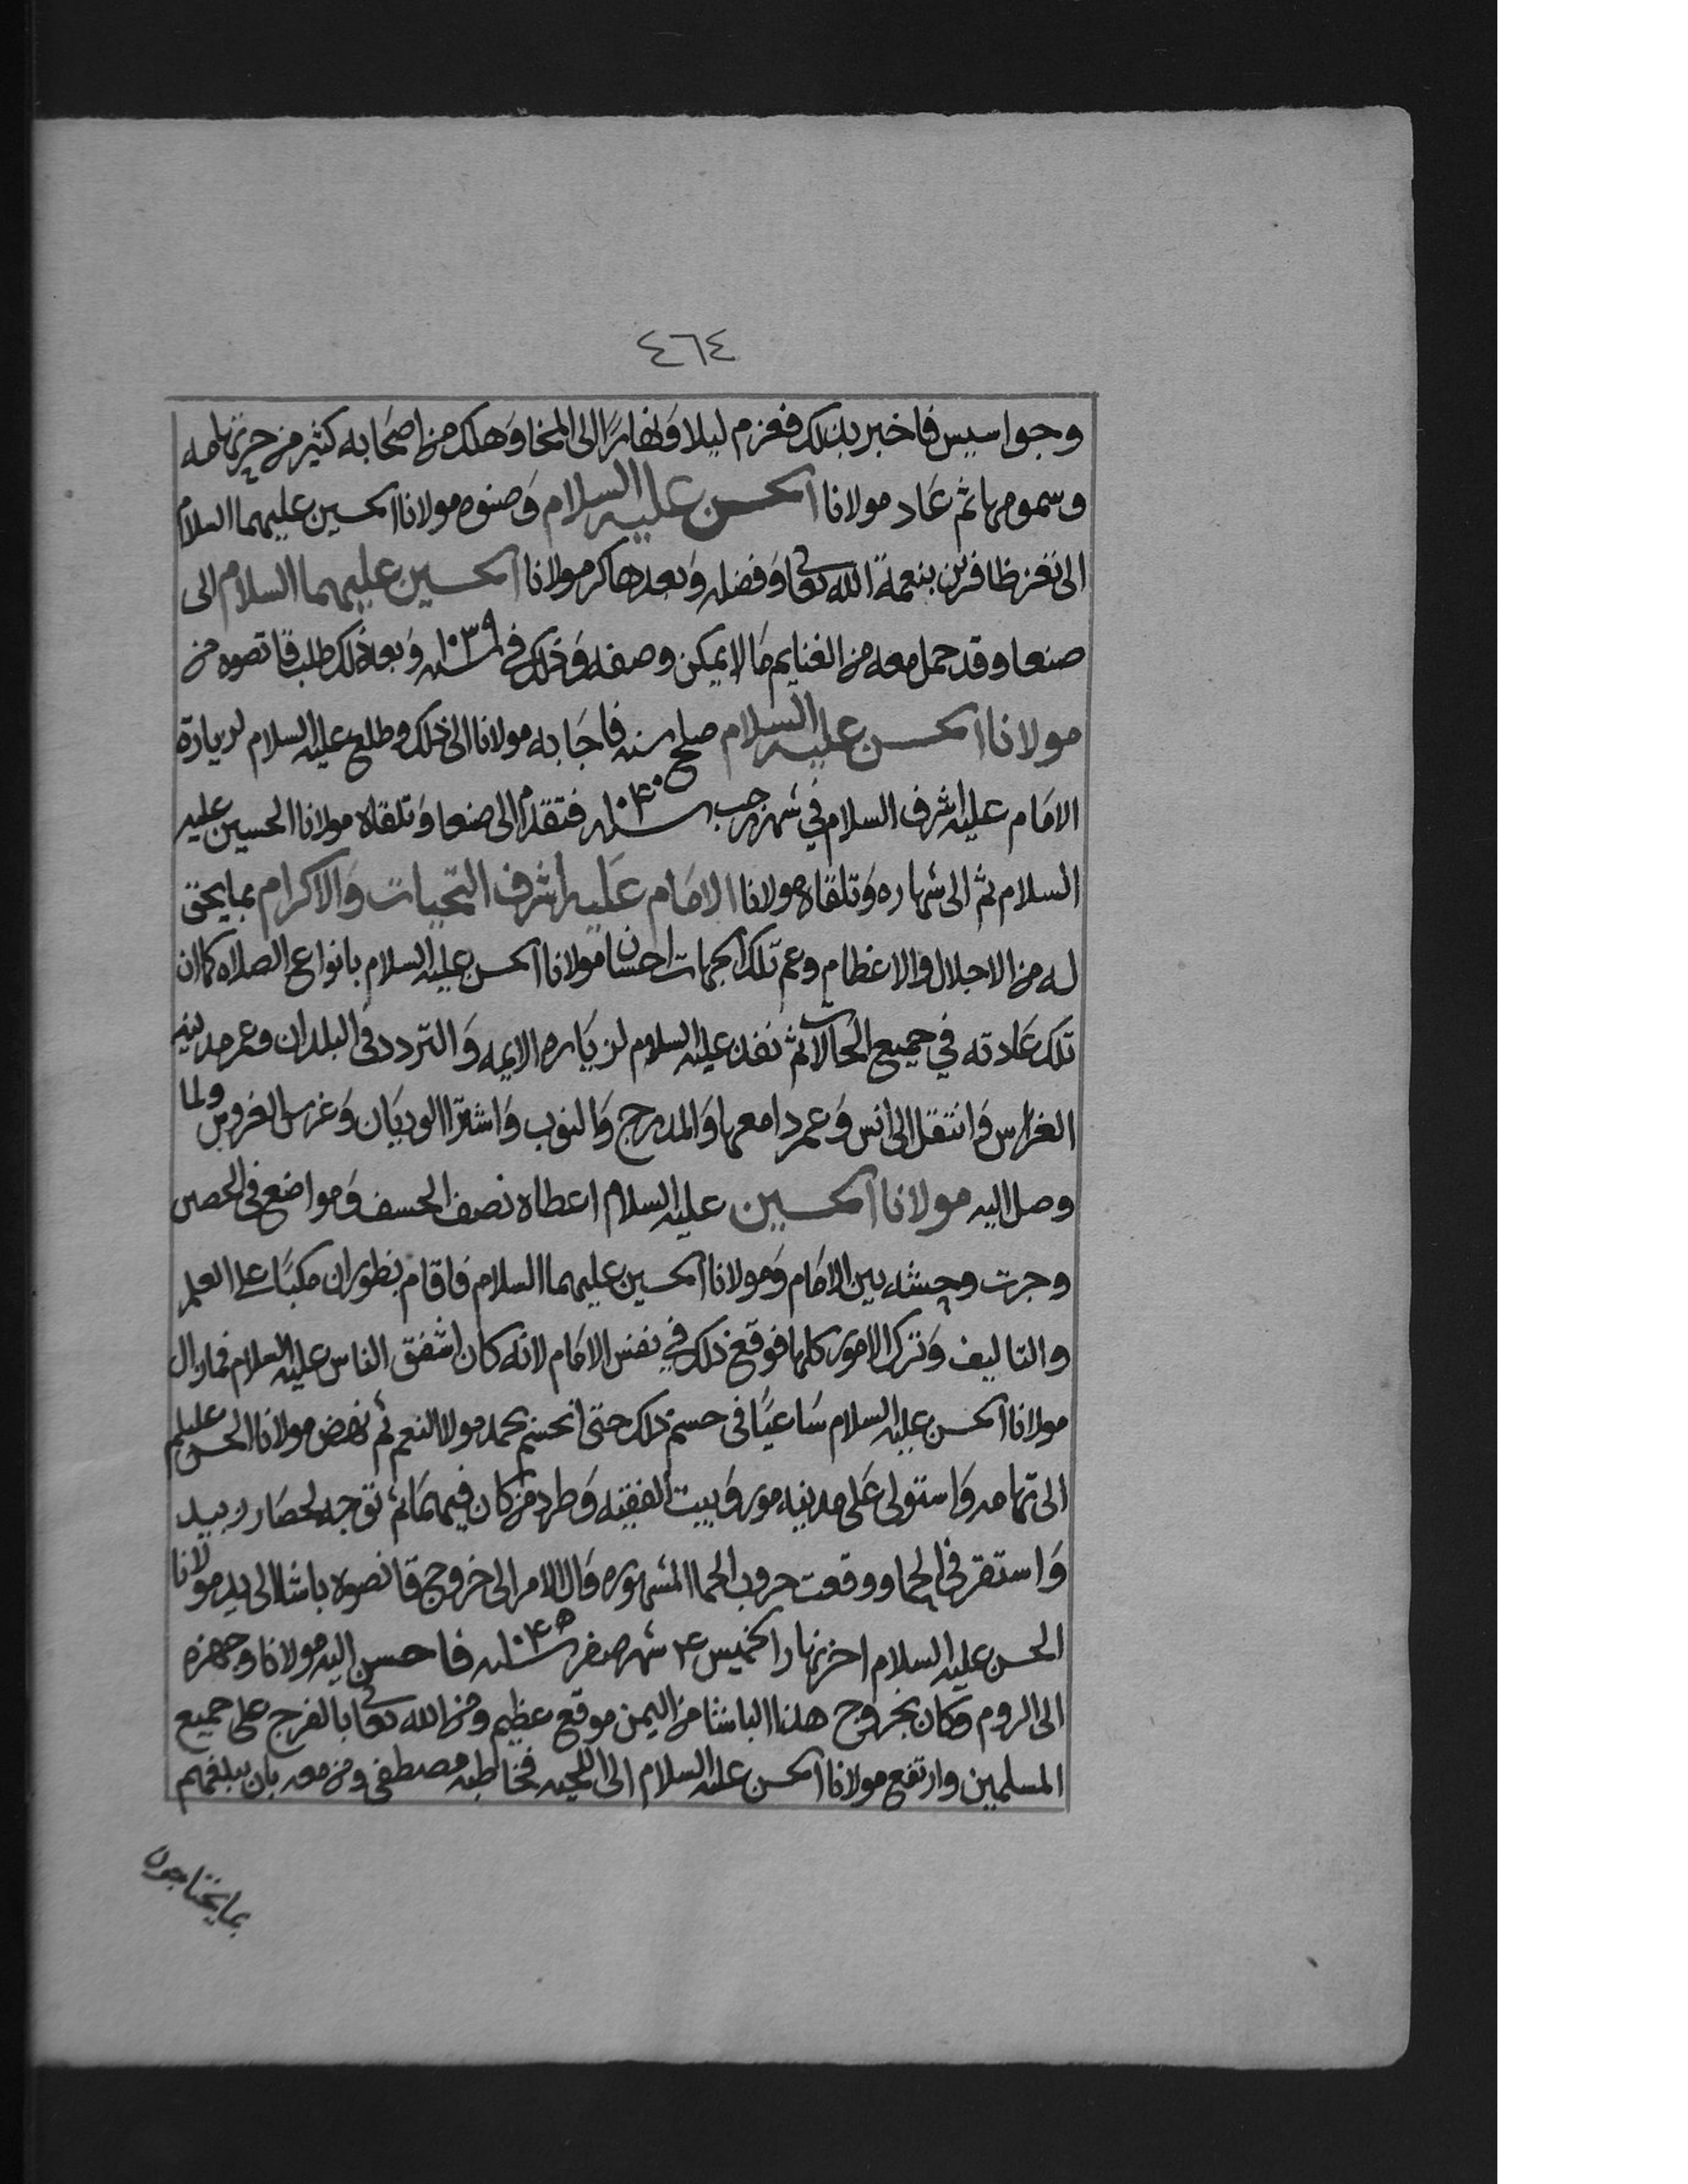 ٤٦٤
وجواسيس فاخبر بذلك فعزم ليلا ونهارًا الى المخا وهلك من اصحابه كثير من حر تهامه
وسمومها ثم عاد مولانا الحسن عليه السلام وصنوه مولانا الحسين عليهما السلام
الى تعز ظافرين بنعمة الله تعالى وفضله وبعدها كر مولانا الحسين عليهما السلام الى
صنعا وقد حمل معه من الغنايم ما لا يمكن وصفه وذلك في سنه ١٠٣٩ وبعد ذلك طلب قانصوه من
مولانا الحسن عليه السلام صلح سنه فاجابه مولانا الى ذلك وطلع عليه السلام لزيارة
الامام عليه اشرف السلام في شهر رجب سنه ١٠٤٠ فتقدم الى صنعا وتلقاه مولانا الحسين عليه
السلام ثم الى شهاره وتلقاه مولانا الامام عليه اشرف التحيات والاكرام بما يحق
له من الاجلال والاعظام وعم تلك الجهات احسان مولانا الحسن عليه السلام بانواع الصلاه كما ان
تلك عادته في جميع الحالات ثم نفذ عليه السلام لزياره الايمه والتردد في البلدان وعمر مدينه
الغراس وانتقل الى انس وعمر دامعها والمدرج والنوب واشترا الوديان وغرس الغروس ولما
وصل اليه مولانا الحسين عليه السلام اعطاه نصف الحسف ومواضع في الحصين
وجرت وحشه بين الامام ومولانا الحسين عليهما السلام فاقام بظوران مكبًا على العلم
والتاليف وترك الامور كلها فوقع ذلك في نفس الامام لانه كان اشفق الناس عليه السلام فما زال
مولانا الحسن عليه السلام ساعيًا في حسم ذلك حتى انحسم بحمد مولا النعم ثم نهض مولانا الحسن عليلم
الى تهامه واستولى على مدينه مور وبيت الفقيه وطرد من كان فيهما ثم توجه لحصار زبيد
واستقر في الحما ووقعت حروب الحما المشهوره وال الامر الى خروج قانصوه باشا الى يد مولانا
الحسن عليه السلام اخر نهار الخميس ٢٤ شهر صفر سنه ١٠٤٥ فاحسن اليه مولانا وجهزه
الى الروم وكان بخروج هذا الباشا من اليمن موقع عظيم ومن الله تعالى بالفرج على جميع
المسلمين وارتفع مولانا الحسن عليه السلام الى اللحيه فخاطبه مصطفى ومن معه بان يبلغهم
بما يحتاجون